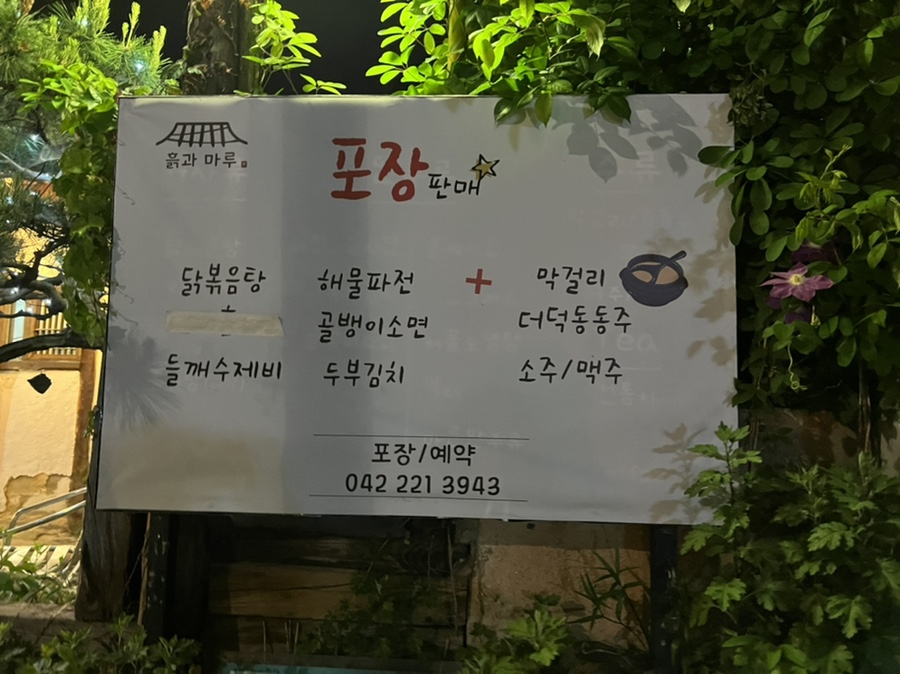 흙과 마루
포장 판매
닭볶음탕 해물파전 + 막걸리
+ 골뱅이소면 더덕동동주
들깨수제비 두부김치 소주/맥주
포장/예약
042 221 3943